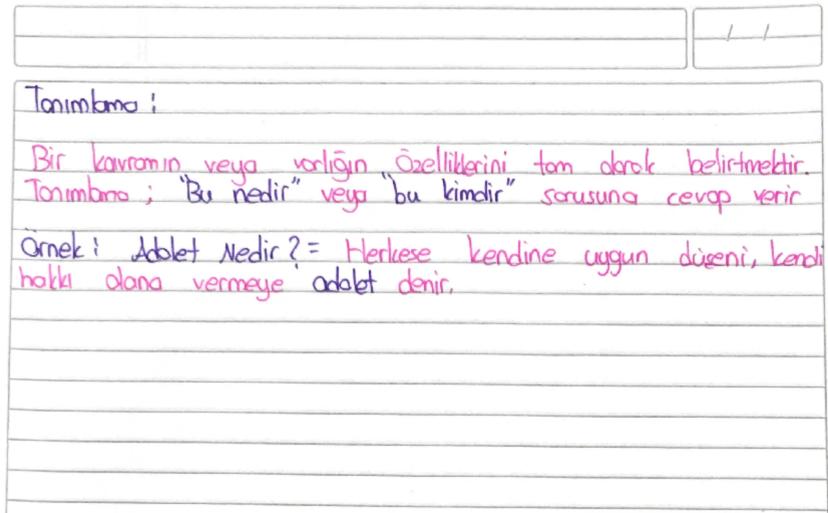 / /
Tanımlama :
Bir kavramın veya varlığın Özelliklerini tam olarak belirtmektir.
Tanımlama ; "Bu nedir" veya "bu kimdir" sorusuna cevap verir
Örnek : Adalet Nedir ? = Herkese kendine uygun düşeni, kendi
hakkı olana vermeye adalet denir.